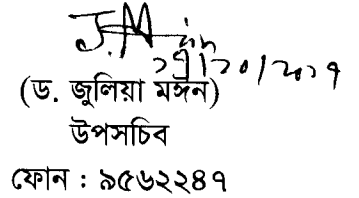 (ড. জুলিয়া মঈন)
উপসচিব
ফোন : ৯৫৬২২৪৭